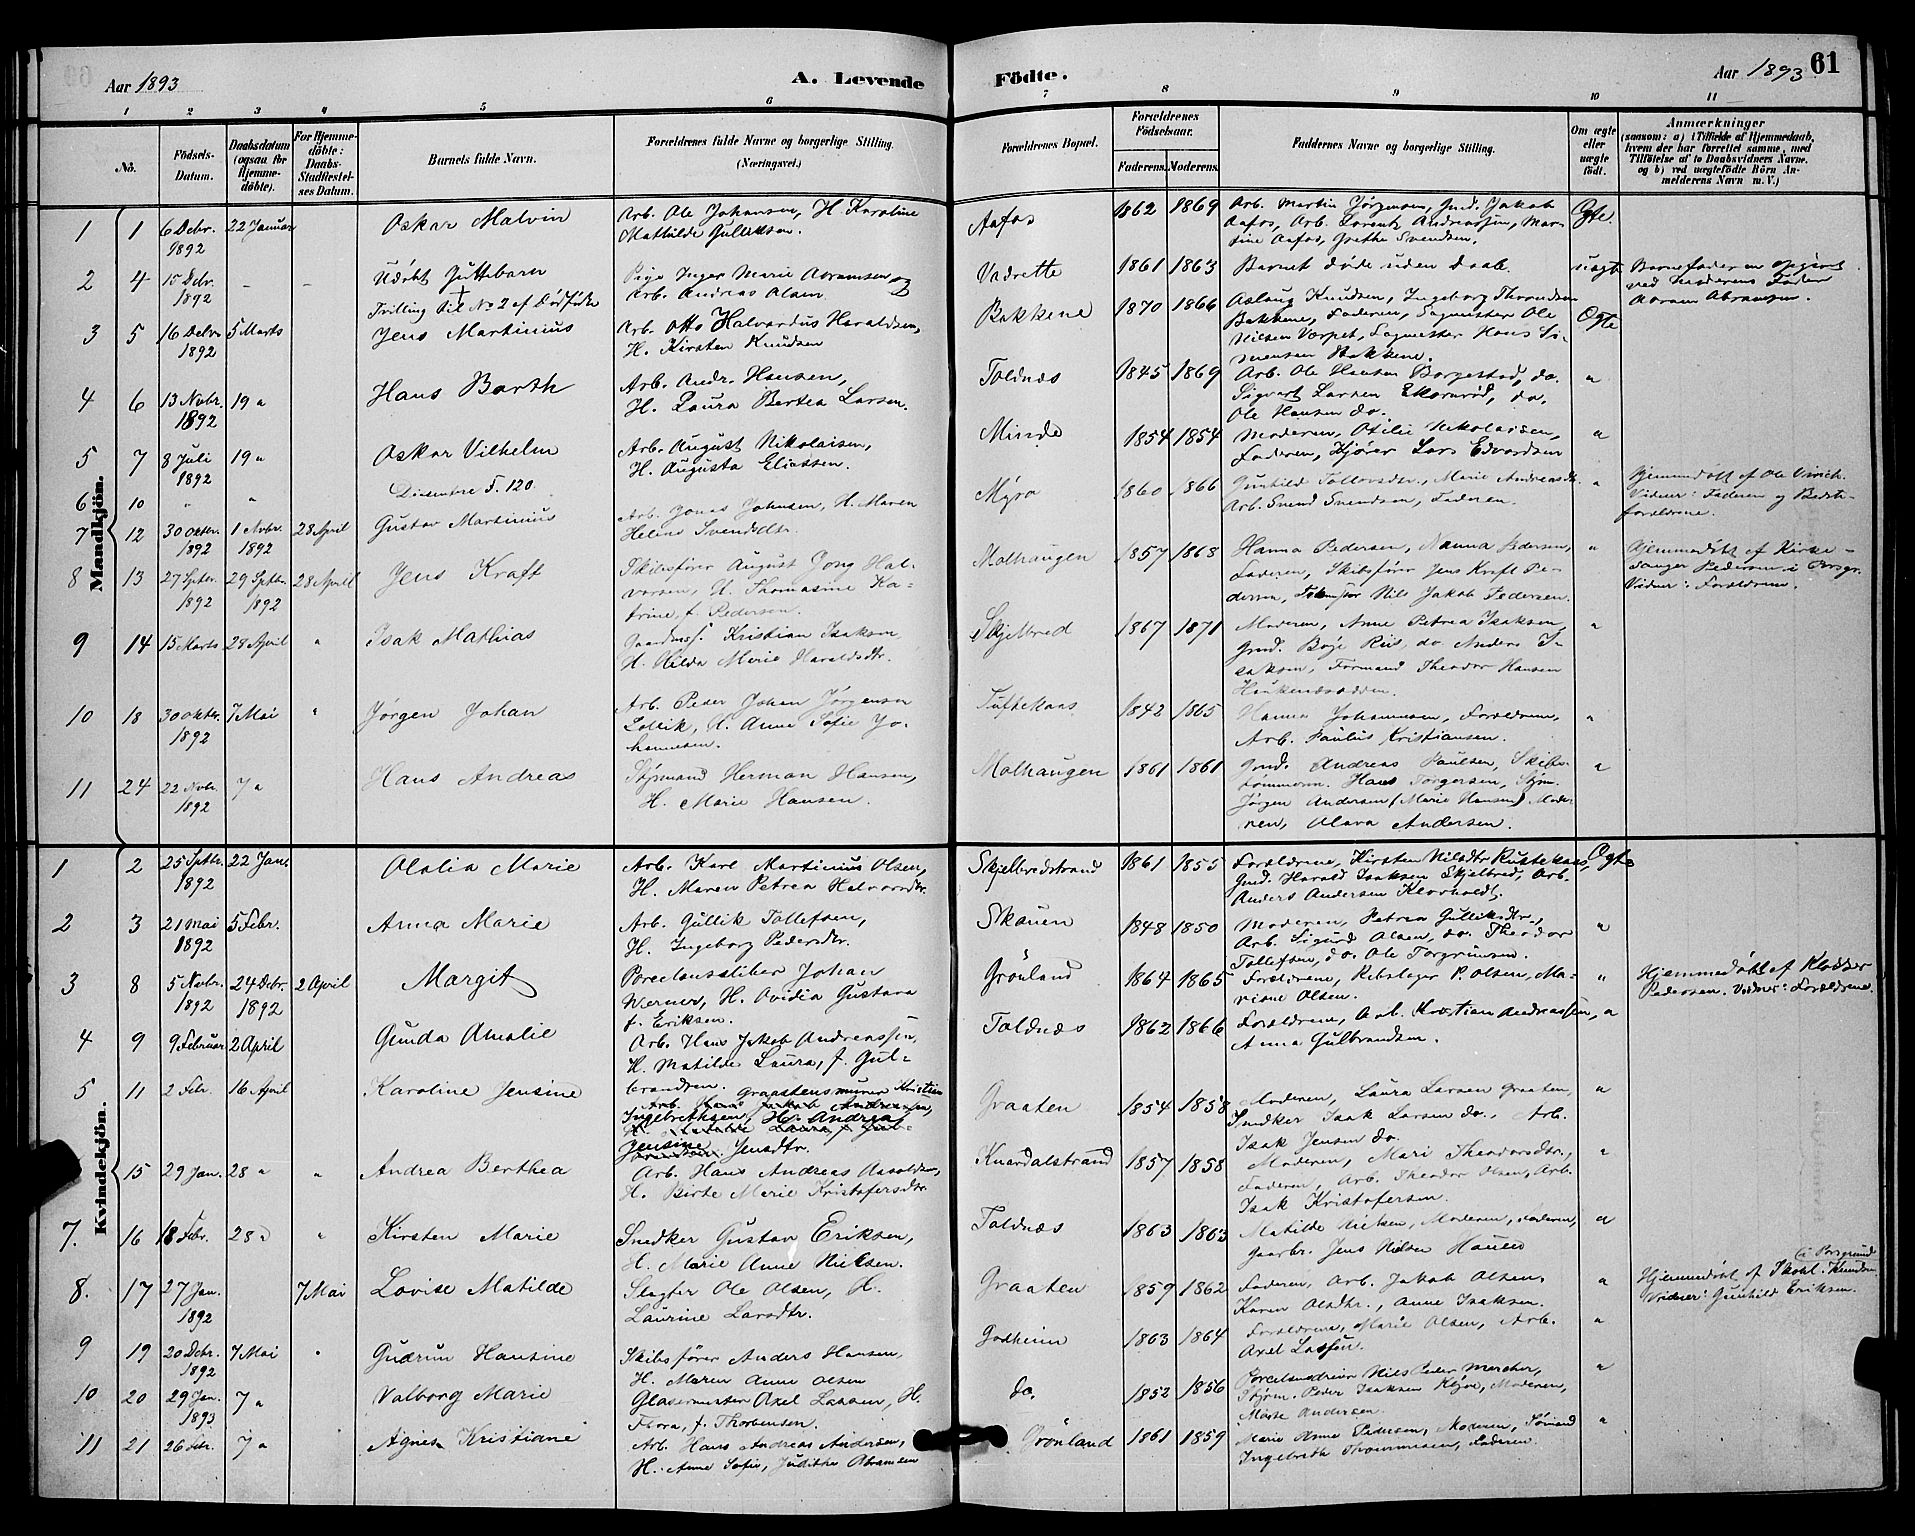 Aar 1893 A. Levende Födte. Aar 1893 61
1 2 3 4 5 6 7 8 9 10 11
No. Födsels-Datum. Daabsdatum (ogsaa for Hjemmedöbte). For Hjemmedöbte: Daabs-Stadfæstelses Datum. Barnets fulde Navn. Forældrenes fulde Navne og borgerlige Stilling. (Næringsvei.) Forældrenes Bopæl. Forældrenes Födselsaar. Faderens. Moderens. Faddernes Navne og borgerlige Stilling. Om ægte eller uægte födt. Anmærkninger (saasom: a) i Tilfælde af Hjemmedaab, hvem der har forrettet samme, med Tilföielse af to Daabsvidners Navne, og b) ved uægtefödte Börn Anmelderens Navn m. V.)
Mandkjön.
1 1 6 Decbr. 1892 22 Januar Oskar Malvin Arb. Ole Johansen, H. Karoline
Mathilde Gulliksen. Aafos 1862 1869 Arb. Martin Jørgensen, Gmd. Jakob
Aafos, Arb. Lorentz Andreassen, Martine Aafos, Grethe Svendsen. Ægte.
2 4 15 Debr. 1892 – – Udøbt Guttebarn
Tvilling til No 2 af Dødfødte Pige Inger Marie Abramsen og
Arb. Andreas Olsen Vadrette 1861 1863 Barnet døde uden Daab. uægte Barnefader er opgivet
ved Moderens Fader
Abram Abramsen.
3 5 16 Debr. 1892 5 Marts Jens Martinius Arb. Otto Halvardus Haraldsen,
H. Kirsten Knudsen Bakkene 1870 1866 Aslaug Knudsen, Ingeborg Thorsdsen
Bakkene, Faderen, Sagmester Ole
Nilsen Værpet, Sagmester Hans Simonsen Bakkene. Ægte
4 6 13 Novbr. 1892 19 " Hans Barth Arb. Andr. Hansen,
H. Laura Bertea Larsen. Toldnæs 1845 1869 Arb. Ole Hansen Borgestad, do.
Sigvart Larsen, do.
Ole Hansen do. "
5 7 8 Juli 1892 19 " Oskar Vilhelm Arb. August Nikolaisen,
H. Augusta Eliassen. Minde 1854 1854 Moderen, Otilie Nikolaisen,
Faderen, Kjører Lars Edvardsen "
6 10 " " Dissentre F. 120.
7 12 30 Oktbr. 1892 1 Novbr. 1892 28 April Gustav Martinius Arb. Jonas Johnsen, H. Maren
Helene Svendsdtr. Myra 1860 1866 Gunhild Tollevsdr., Marie Andreasdtr.
Arb. Svend Svendsen, Faderen. " Hjemmedøbt af Ole
Vidner: Faderen og Bedsteforældrene.
8 13 27 Septbr. 1892 29 Septbr. 1892 28 April Jens Kraft Skibsfører August Jong Halvorsen, H. Thomasine Katrine, f. Pedersen. Molhaugen 1857 1863 Hanna Pedersen, Nanna Pedersen,
Faderen, Skibsfører Jens Kraft Pedersen, Nils Jakob Pedersen. " Hjemmedøbt af Kirkesanger Pedersen i Porsgr.
Vidner: Forældrene.
9 14 15 Marts 28 April " Isak Mathias Gaardmgs. Kristian Isaksen,
H. Hilda Marie Haraldsdtr. Skjelbred 1867 1871 Moderen, Anne Petrea Isaksen,
Gmd. Børe Riis, do Anders Isaksen, Formand Theodor Hansen "
10 18 30 Oktbr. 1892 7 Mai " Jørgen Johan Arb. Peder Johan Jørgensen
H. Anne Sofie Johannesen. Tuftekaas 1842 1865 Hanna Johannesen, Forældrene,
Arb. Paulus Kristiansen. "
11 24 22 Novbr. 1892 7 " Hans Andreas Styrmand Herman Hansen,
H. Marie Hansen. Molhaugen 1861 1861 Gmd. Andreas Paulsen, Skibstømmerm. Hans Torgersen, Styrm.
Jørgen Andersen (Marie Hansen) Moderen, Olava Andersen. "
Kvindekjön.
1 2 25 Septbr. 1892 22 Jan. Olalia Marie Arb. Karl Martinius Olsen,
H. Maren Petrea Halvorsdtr. Skjelbredstrand 1861 1855 Forældrene, Kirsten Nilsdtr Rustekaas,
Gmd. Harald Isaksen Skjelbred, Arb.
Anders Andersen Klovholdt. Ægte
2 3 21 Mai 1892 5 Febr. Anna Marie Arb. Gullik Tollefsen,
H. Ingeborg Pedersdtr. Skauen 1848 1850 Moderen, Petrea Gulliksdtr.,
Arb. Sigurd Olsen, do. Theodor
Tollefsen, do. Ole Torgrimsen. "
3 8 5 Novbr. 1892 24 Debr. 1892 2 April Margit Porcelænssliber Johan
Werner, H. Ovidia Gustava
f. Eriksen. Grønland 1864 1865 Forældrene, Rebslager P. Olsen, Marisne Olsen. " Hjemmedøbt af Klokker
Pedersen. Vidner: Forældrene.
4 9 9 Februar 2 April Gunda Amalie Arb. Hans Jakob Andreassen,
H. Matilde Laura, f. Gulbrandsen. Toldnæs 1862 1866 Forældrene, Arb. Kristian Andreassen,
Anna Gulbrandsen. "
5 11 2 Febr. 16 April Karoline Jensine Graastensmurer Kristian
Ingebretksen, H. Andrea
Jensine Jensdtr. Graaten 1854 1858 Moderen, Laura Larsen Graaten,
Snedker Isak Larsen do., Arb.
Isak Jensen do. "
15 29 Jan. 28 " " Andrea Berthea Arb. Hans Andreas Aasoldsen,
H. Birte Marie Kristofersdtr. Knardalstrand 1857 1858 Moderen, Mari Theodorsdtr.,
Faderen, Arb. Theodor Olsen, Arb.
Isak Kristofersen. "
7. 16 18 Febr. 28 " " Kirsten Marie Snedker Gustav Eriksen,
H. Marie Anne Nielsen. Toldnæs 1863 1863 Matilde Nielsen, Moderen, Faderen,
Gaarbr. Jens Nilsen Hauen "
8. 17 27 Jan. 1892 7 Mai Lovise Matilde Slagter Ole Olsen, H.
Laurine Larsdtr. Graaten 1859 1862 Faderen, Arb. Jakob Olsen,
Karen Olsdtr., Anne Isaksen. " Hjemmedøbt af Skohl. Knudsen i Porsgrund
Vidner: Gunhild Eriksen.
9 19 20 Debr. 1892 7 Mai " Gudrun Hansine Skibsfører Anders Hansen,
H. Maren Anne Olsen Godheim 1863 1864 Forældrene, Marie Olsen, Arb.
Axel Lassen. "
10 20 29 Jan. 1893 7 " Valborg Marie Glasermester Axel Lassen, H.
Thora, f. Thorbensen. do. 1852 1856 Porcelænsdreier Nils Peder Morcher,
Styrm. Peder Isaksen, Moderen,
Marte Andersen. "
11 21 26 Febr. 7 " Agnes Kristiane Arb. Hans Andreas Andersen,
H. Anne Sofie, Judithe Abramsen Grönland 1861 1859 Marie Anne Pedersen, Moderen, Sömand
Ingebreth Thommesen, Faderen. "